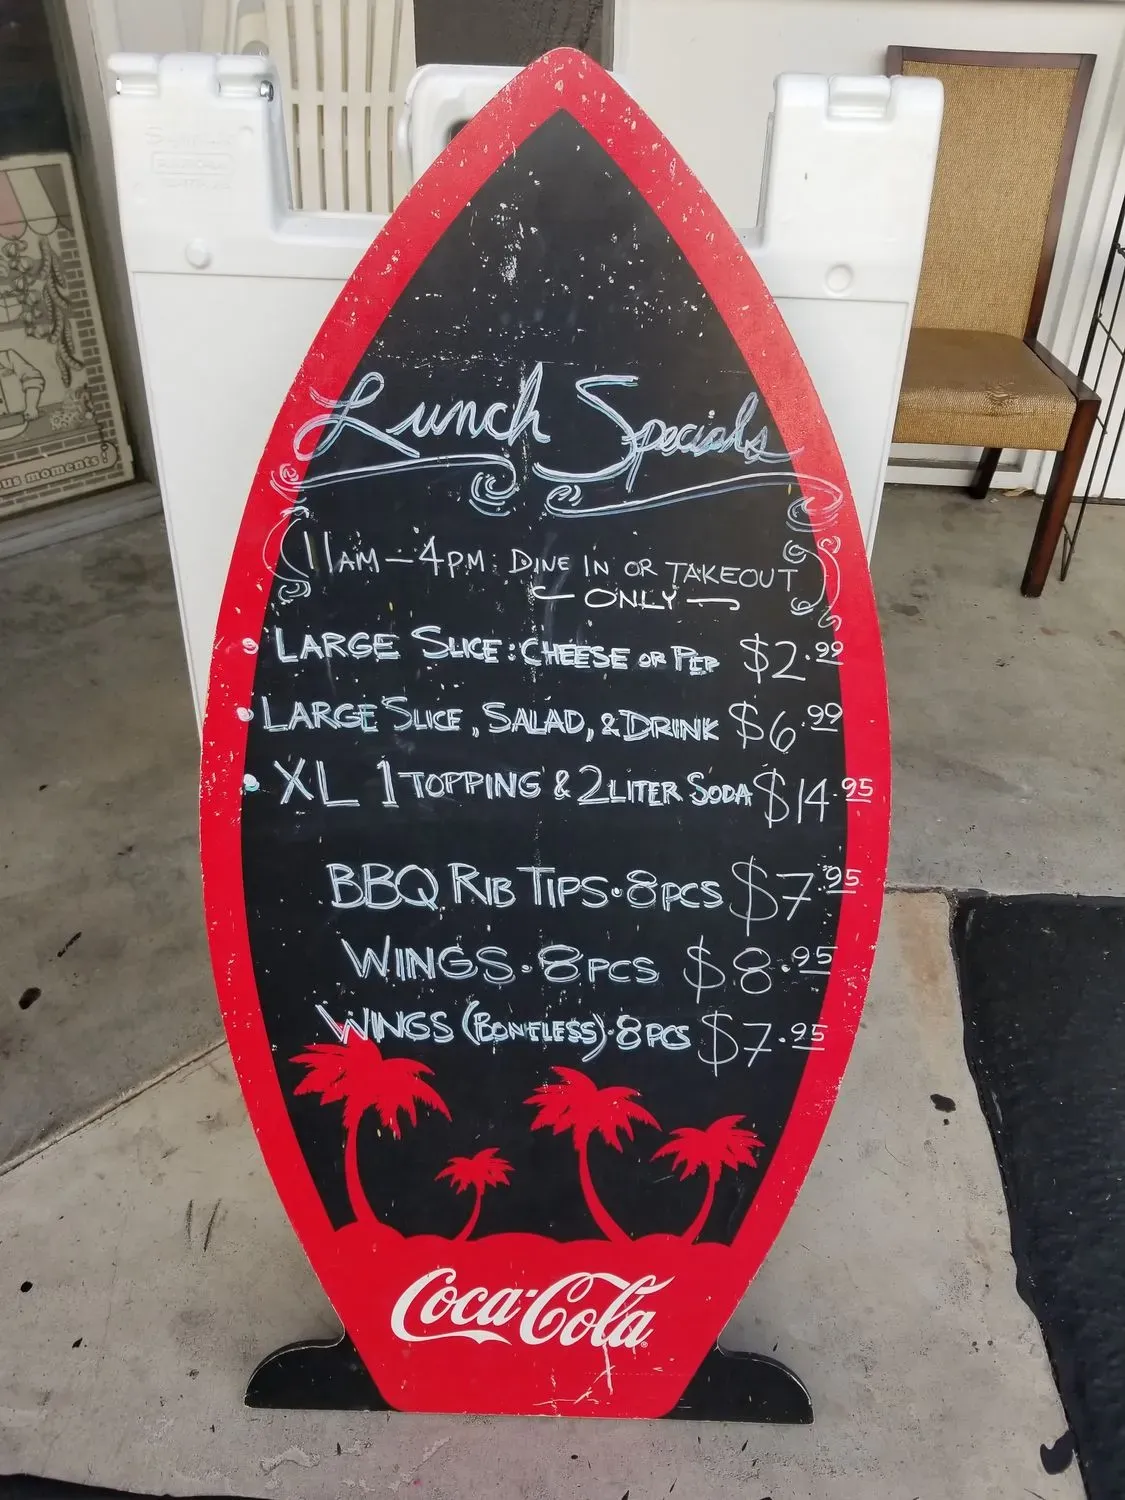 Lunch Specials
11AM - 4PM: DINE IN OR TAKEOUT
ONLY
• LARGE SLICE: CHEESE OR PEP $2.99
• LARGE SLICE, SALAD, & DRINK $6.99
• XL 1 TOPPING & 2 LITER SODA $14.95
BBQ RIB TIPS • 8PCS $7.95
WINGS • 8PCS $8.95
WINGS (BONELESS) • 8PCS $7.95
Coca-Cola
moments